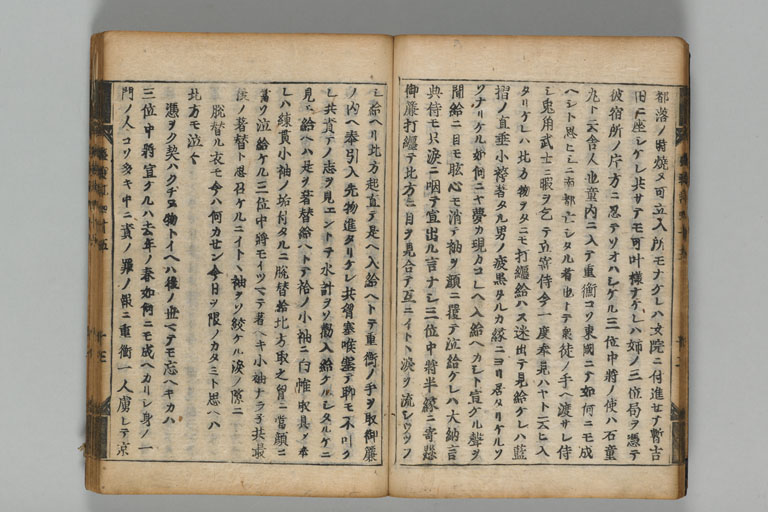 都落ノ時焼ヌ可立入所モナケレハ女院ニ付進セテ暫古
旧ニ座シケレ共サテモ可叶様ナケレハ姉ノ三位局ヲ憑テ
彼宿所ノ片方ニ忍テソオハシケル三位中将ノ使ハ石童
丸ト云舎人也童内ニ入テ重衡コソ東國ニテ如何ニモ成
ヘシト思ヒシニ南都亡シタル者也トテ衆徒ノ手ヘ渡サレ侍
シ兎角武士ニ暇ヲ乞テ立寄侍今一度奉見ハヤト云ヒ入
タリケレハ北方物ヲタニモ打纏給ハス迷出テ見給ケレハ藍
摺ノ直垂小袴著タル男ノ疲黒タルカ縁ニヨリ居タリケルソ
ソナリケル如何ニヤ夢カ現カコレヘ入給ヘカシト宣ケル聲ヲ
聞給ニ目モ眩心モ消テ袖ヲ顔ニ覆テ泣給ケレハ大納言
典侍モ只涙ニ咽テ宣出ル言ナシ三位中将半縁ニ寄懸
御簾打纏テ北方ニ目ヲ見合テ互ニイトヽ涙ヲ流シツヽソ
シ給ヘリ北方起直テ是ヘ入給ヘトテ重衡ノ手ヲ取御簾
ノ内ヘ奉引入先物進タリケレ共胸塞喉塞テ聊モ不叶
レ共責テノ志ヲ見エントテ水計ヲソ勧入給ケルシタルケニ
見ヘ給ヘハ是ヲ著替給ヘトテ袷ノ小袖ニ白帷取具ノ奉
レハ練貫小袖ノ垢付タルニ脱替給北方取之胸ニ當顔ニ
當ソ泣給ケル三位中将モイツマテ著ヘキ小袖ナラネ共最
後ノ著替ト思召ケルニイトヽ袖ヲソ絞ケル涙ノ隙ニ
脱替ル衣モ今ハ何カセン今日ヲ限ノカタミト思ヘハ
北方モ泣々
憑ヲク契ハクチヌ物トイヘハ後ノ世マテモ忘ヘキカハ
三位中将宣ケルハ去年ノ春如何ニモ成ヘカリシ身ノ一
門ノ人コソ多キ中ニ責ノ罪ノ報ニ重衡一人虜レテ京